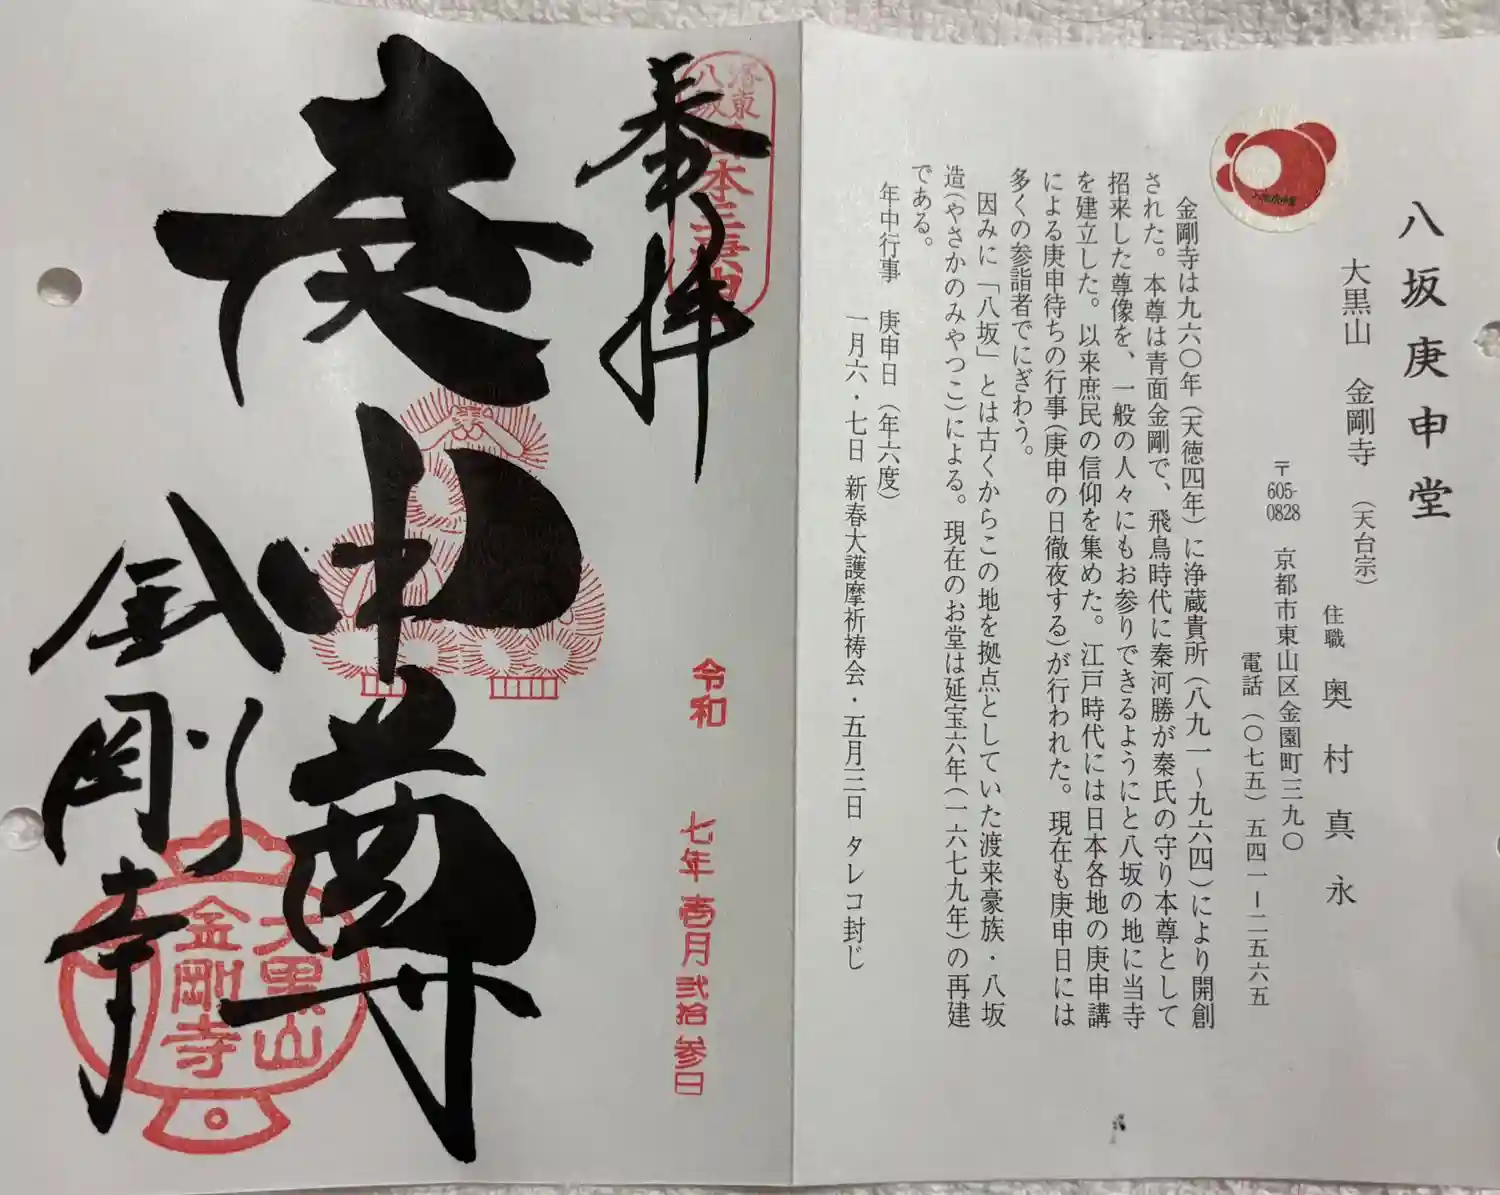 八坂庚申堂
大黒山　金剛寺　（天台宗）
住職　奥村真永
〒605-0828　京都市東山区金園町三九〇
電話（〇七五）五四一ー二五六五
金剛寺は九六〇年（天徳四年）に浄蔵貴所（八九一～九六四）により開創
された。本尊は青面金剛で、飛鳥時代に秦河勝が秦氏の守り本尊として
招来した尊像を、一般の人々にもお参りできるようにと八坂の地に当寺
を建立した。以来庶民の信仰を集めた。江戸時代には日本各地の庚申講
による庚申待ちの行事（庚申の日徹夜する）が行われた。現在も庚申日には
多くの参詣者でにぎわう。
因みに「八坂」とは古くからこの地を拠点としていた渡来豪族・八坂
造（やさかのみやつこ）による。現在のお堂は延宝六年（一六七九年）の再建
である。
年中行事　庚申日（年六度）
一月六・七日 新春大護摩祈祷会・五月三日 タレコ封じ
奉拝
洛東
八坂 日本三庚申
令和　七年壱月弐拾参日
庚申尊
金剛寺
大黒山
金剛寺